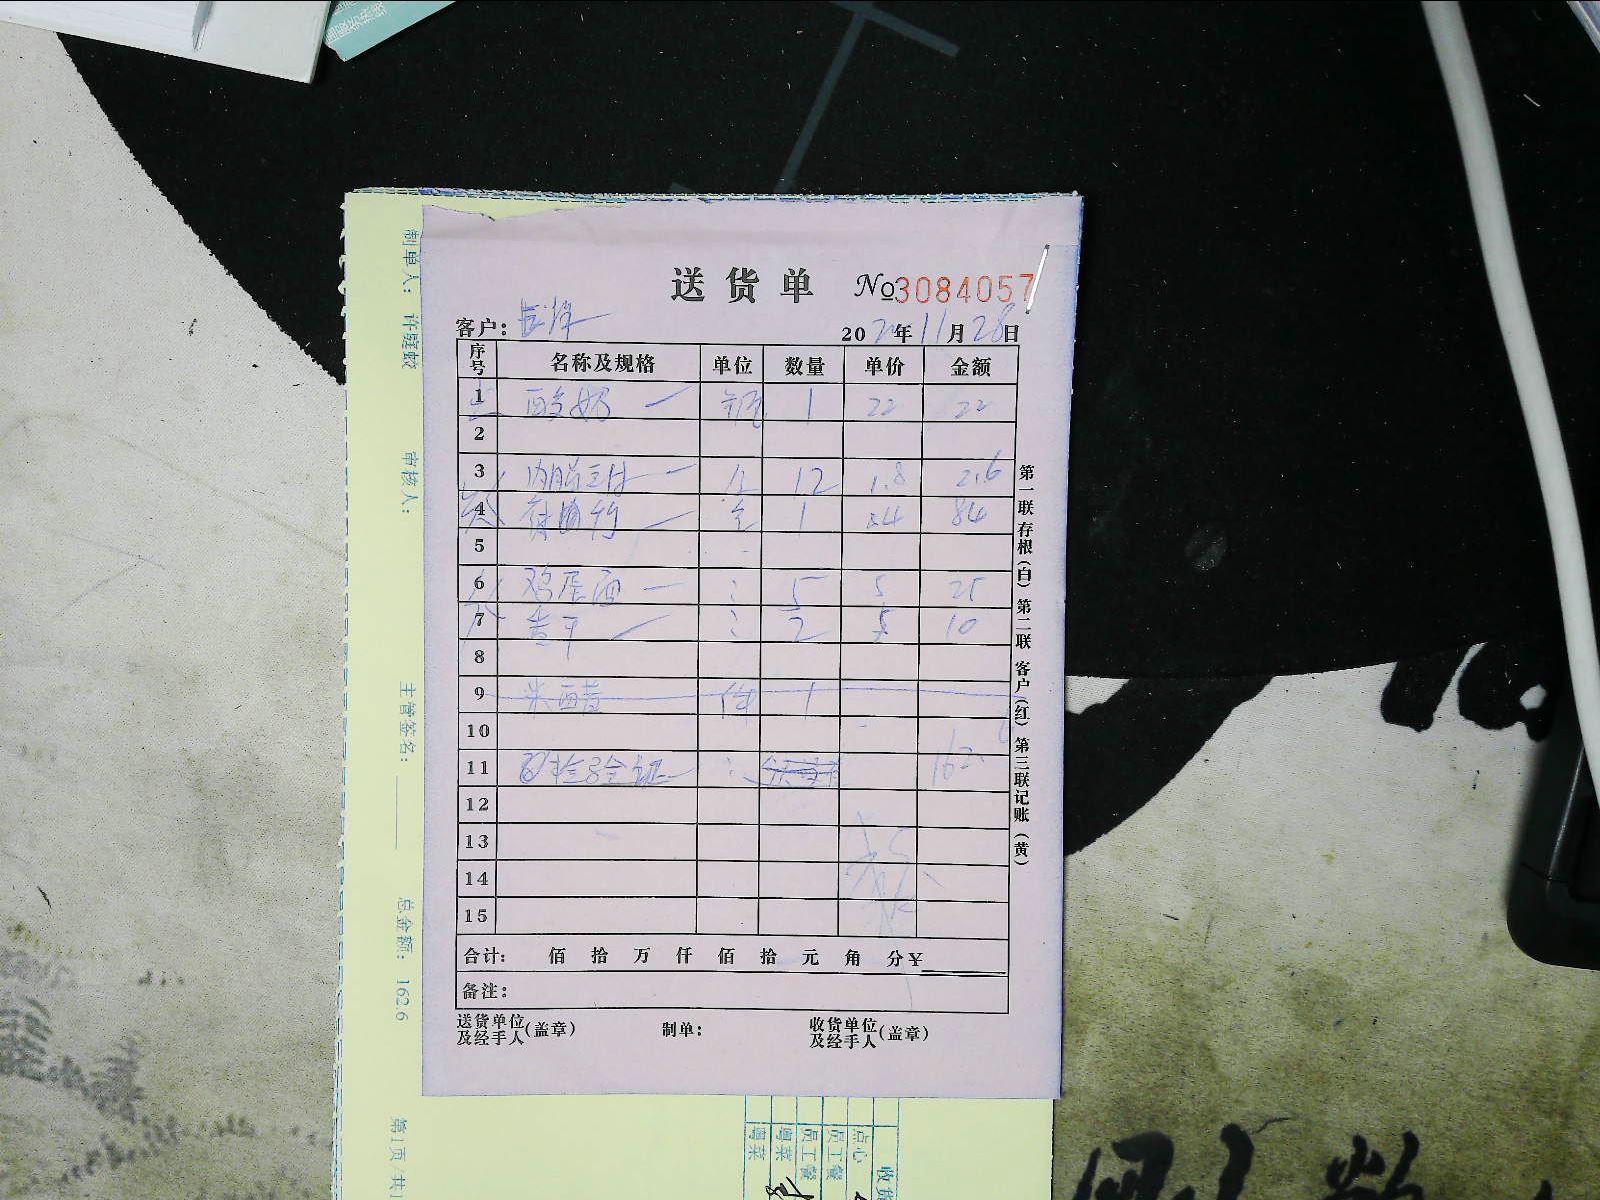 送货单 №3084057
客户：
20 年11月28日
序号 名称及规格 单位 数量 单价 金额
1 酸奶 瓶 1 22 22
2
3 内脂豆付 12 1.8 21.6
4 1 84 84
5
6 鸡蛋面 5 5 25
7 2 5 10
8
9 米西 件 1
10
11 检验证 162.
12
13
14
15
合计： 佰 拾 万 仟 佰 拾 元 角 分 ¥
备注：
送货单位及经手人（盖章） 制单： 收货单位及经手人（盖章）
第一联存根（白）第二联客户（红）第三联记账（黄）
制单人： 许庭蛟 审核人： 主管签名： 总金额： 162.6 第1页/共1
粤菜
粤菜
员工餐
员工餐
点心
收货